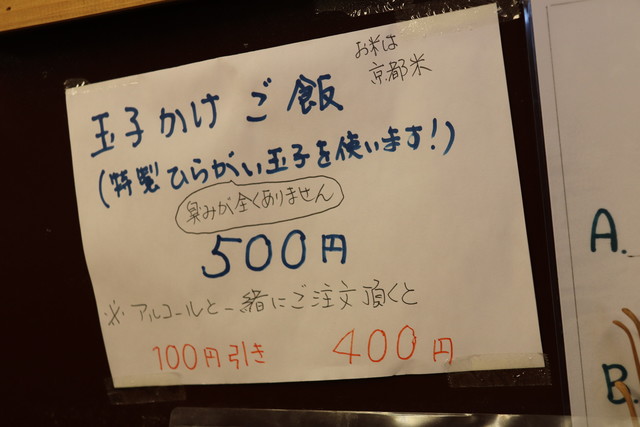 お米は
京都米
玉子かけご飯
(特製ひらがい玉子を使います!)
臭みが全くありません
500円
※アルコールと一緒にご注文頂くと
100円引き 400円
A.
B.